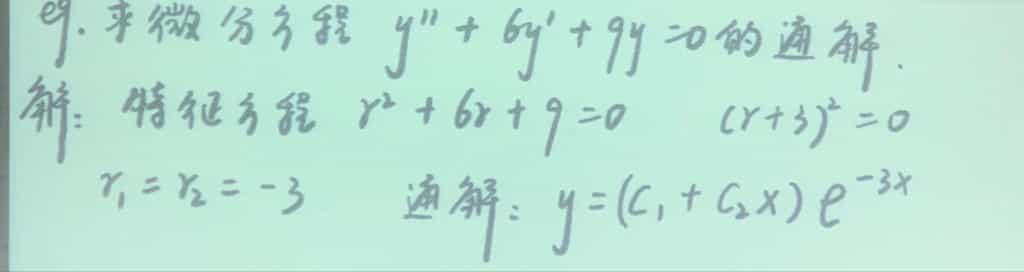 eg. 求微分方程 y'' + 6y' + 9y = 0 的通解.
解: 特征方程 r² + 6r + 9 = 0 (r+3)² = 0
r₁ = r₂ = -3 通解: y = (C₁ + C₂x) e⁻³ˣ